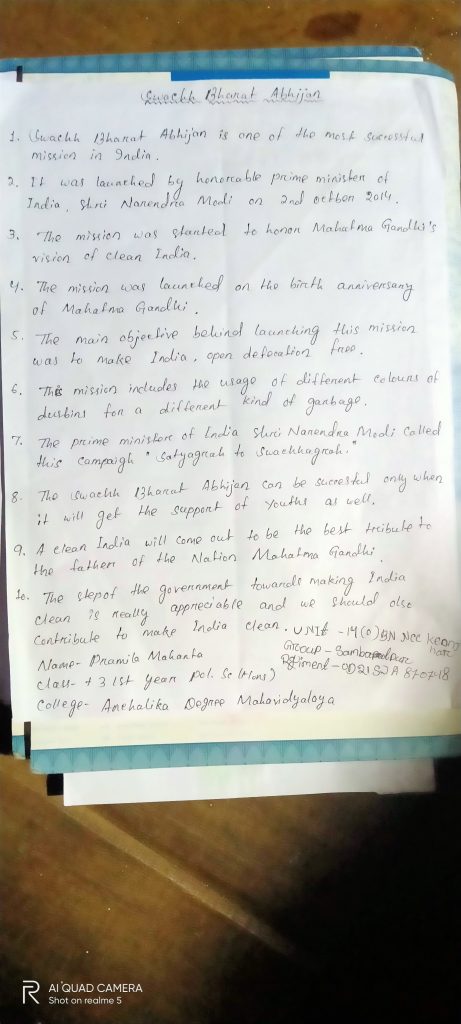 Swachh Bharat Abhijan
1. Swachh Bharat Abhijan is one of the most successful
mission in India.
2. It was launched by honorable prime minister of
India, Shri Narendra Modi on 2nd octber 2014.
3. The mission was started to honor Mahatma Gandhi's
vision of clean India.
4. The mission was launched on the birth anniversary
of Mahatma Gandhi.
5. The main objective behind launching this mission
was to make India, open defecation free.
6. This mission includes the usage of different colours of
dusbins for a different kind of garbage.
7. The prime minister of India Shri Narendra Modi called
this campaigh "Satyagrah to Swachhagrah."
8. The Swachh Bharat Abhijan can be successful only when
it will get the support of youths as well.
9. A clean India will come out to be the best tribute to
the father of the Nation Mahatma Gandhi.
10. The step of the government towards making India
clean is really appreciable and we should also
contribute to make India clean.
UNIt - 14(0) BN Ncc Keonjhar
Name- Pramila Mahanta
Group - Sambalpur
Class- +3 1st year Pol. Sc (Hons)
College- Anchalika Degree Mahavidyalaya
AI QUAD CAMERA
Shot on realme 5